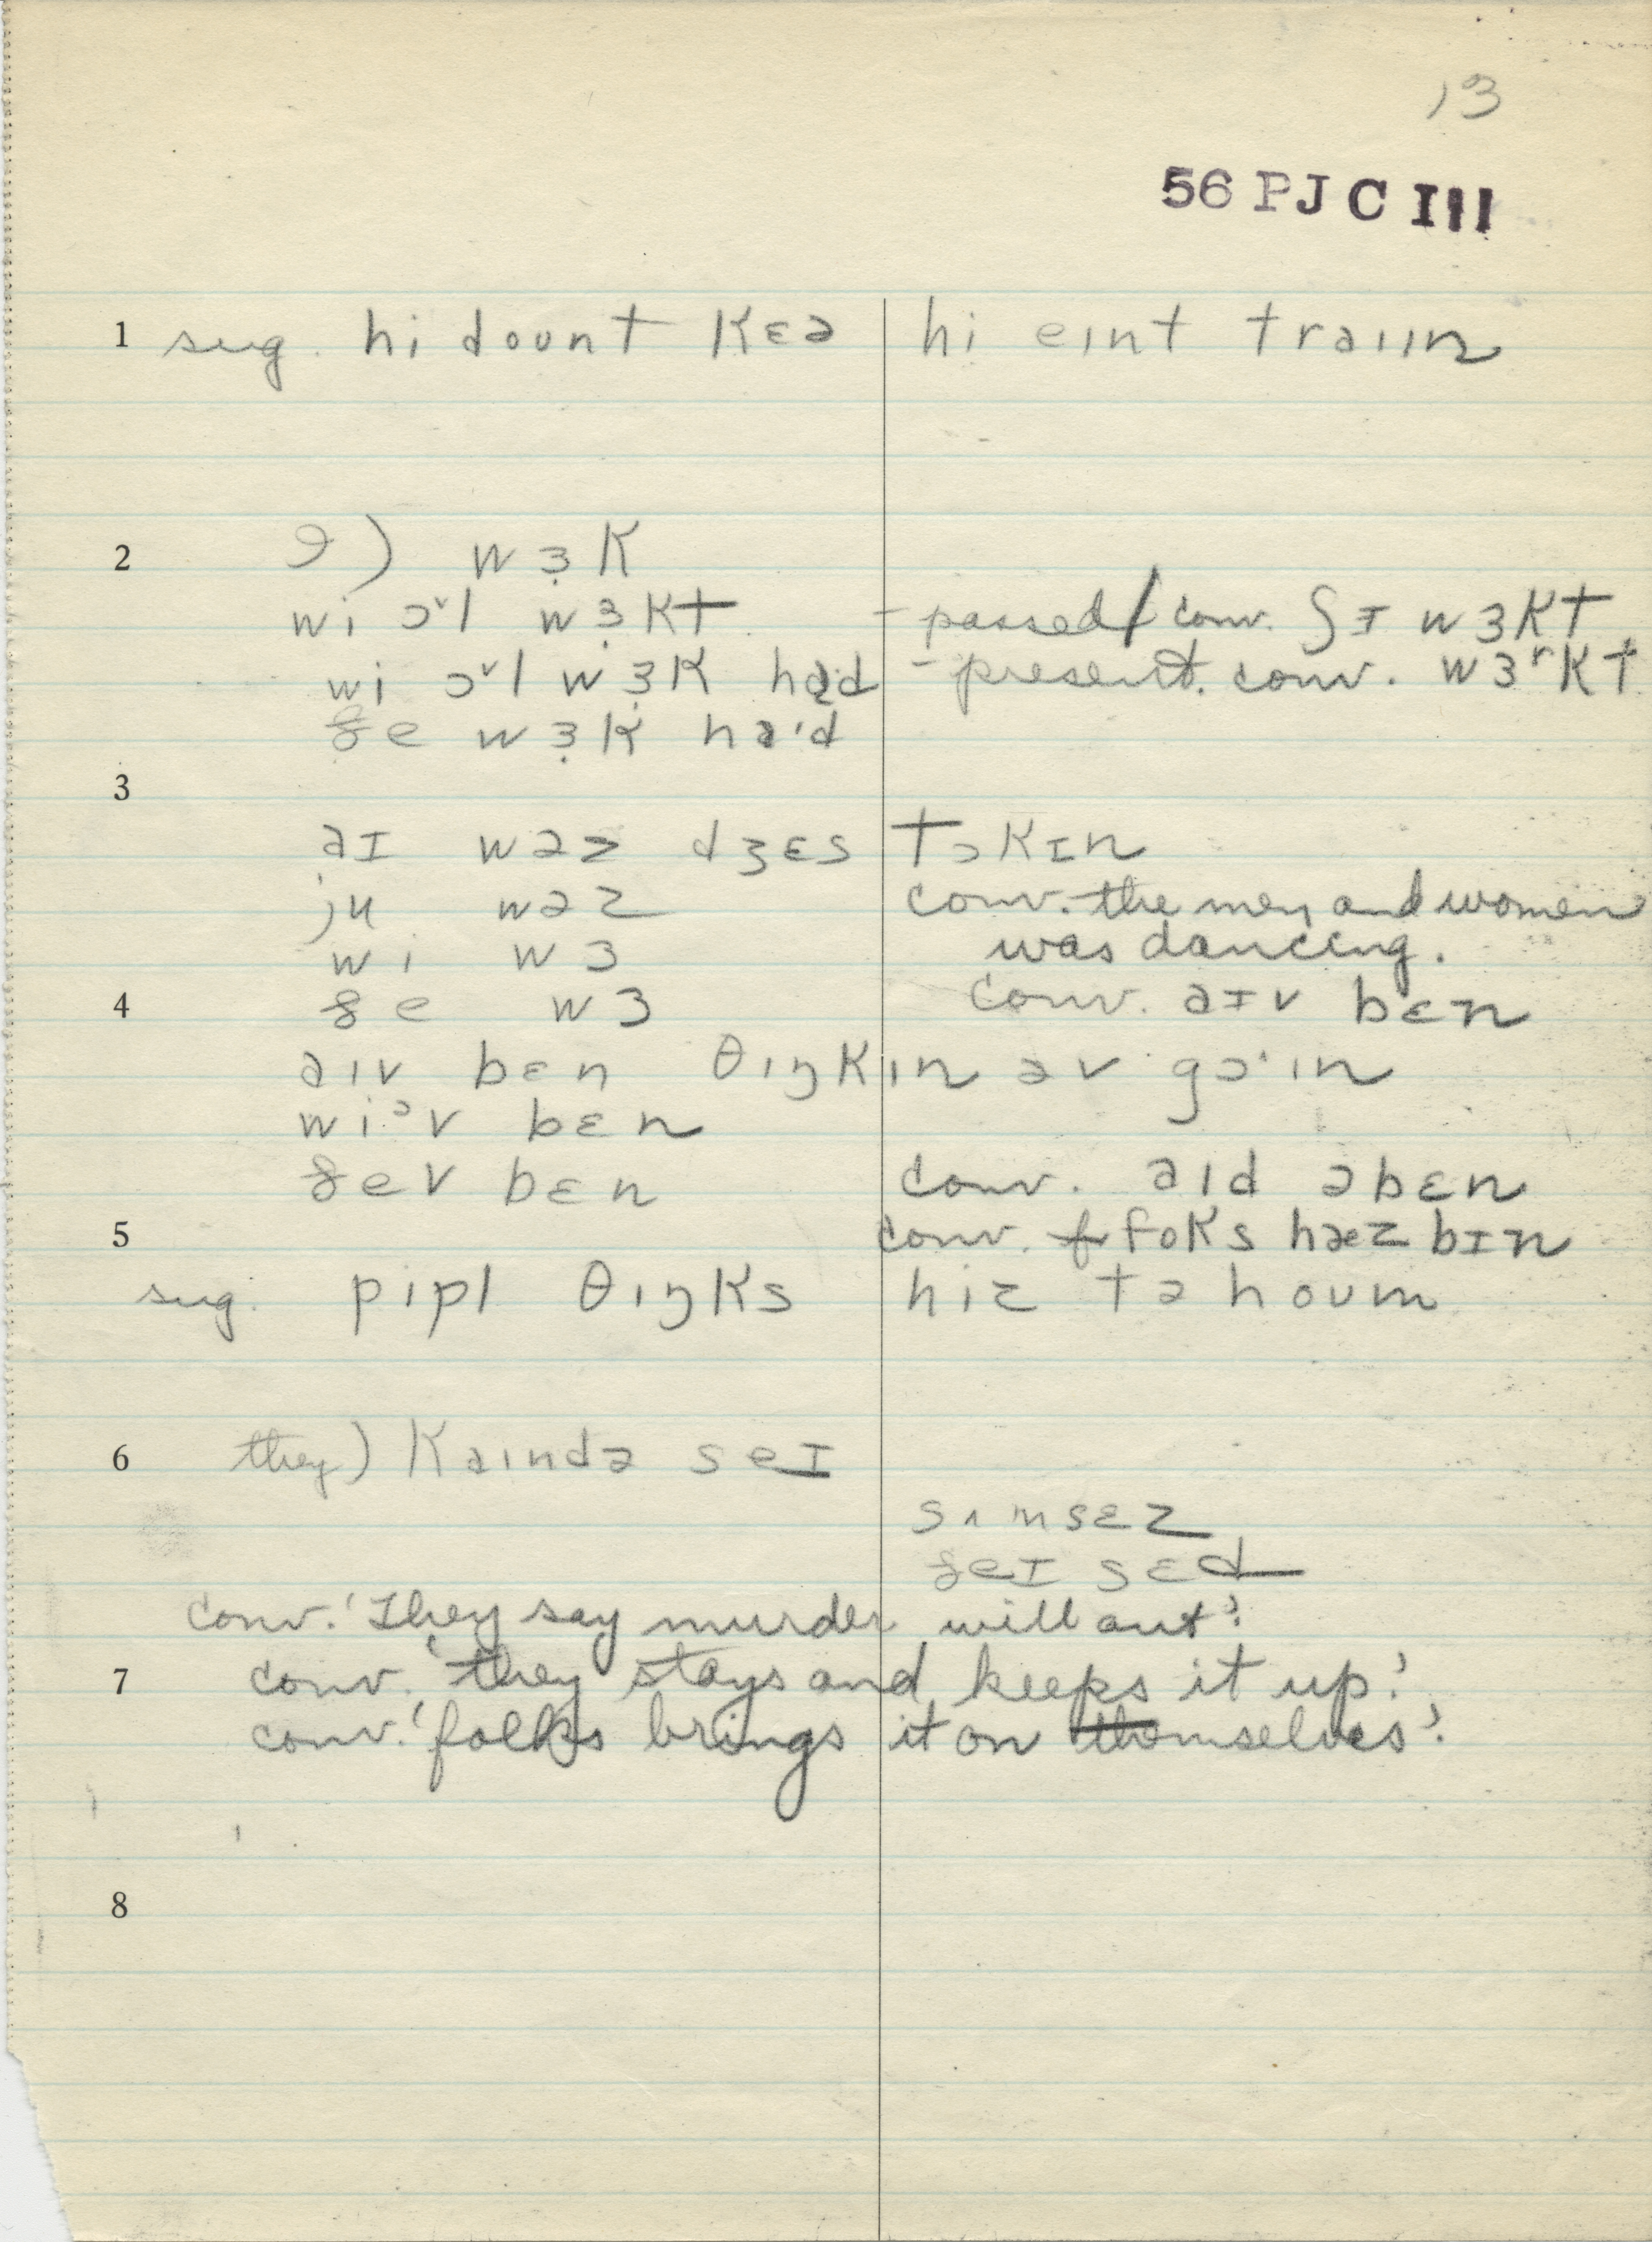 13
56 PJC III
1 sug. hi dount kɛə hi eint traiin
2 ə) wɜ̣k
wi ɔˇl wɜ̣kt - passed / conv. ʃɪ wɜkt
wi ɔˇl wɜ̣k - present. conv. wɜʳkt
ðe wɜ̣k ha'd
3
aɪ wəz dʒɛs tɔkɪn
ju wəz conv. the men and women
wi wɜ was dancing.
4 ðe wɜ conv. aɪv bɛn
aiv bɛn θiŋkin əv gɔ'in
wiᵊv bɛn
ðev bɛn conv. aid əbɛn
5 conv. foks hæz bɪn
sug. pipl θiŋks hiz tə houm
6 they) kaində seɪ
sʌmsɛz
ðeɪ sɛd
conv. 'They say murder will out'.
7 conv. 'they stays and keeps it up.'
conv. 'folks brings it on themselves'.
8